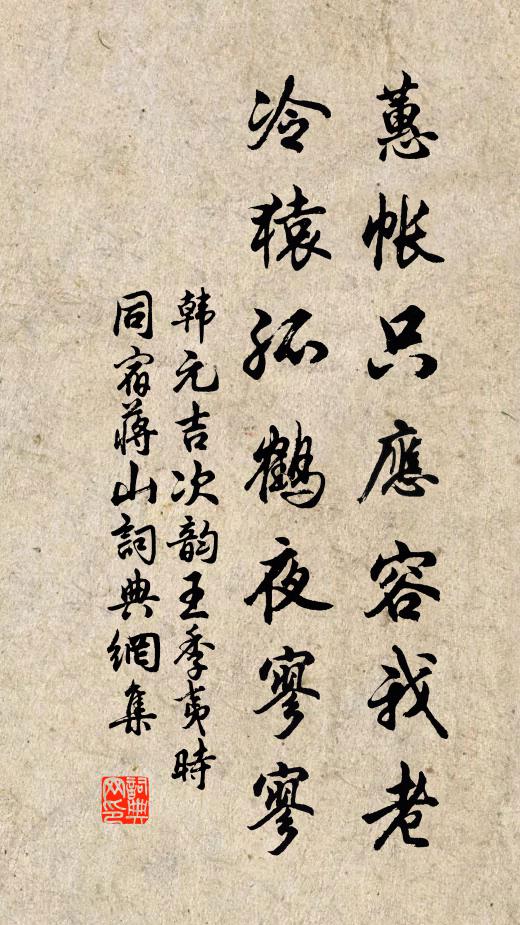 蕙帐只應容我老
冷猿孤鶴夜寥寥
韩元吉次韵王季夷時
同宿蒋山詞典網集
詞典
网印